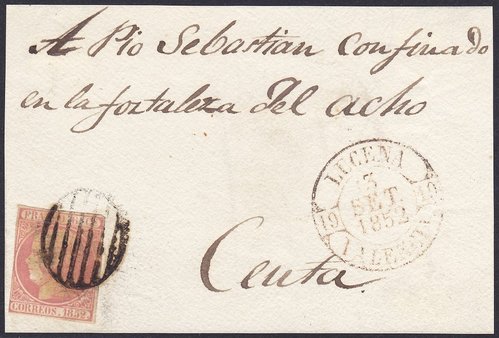 A Pio Sebastian confinado
en la fortaleza del acho
Ceuta
LUCENA
3
SET
1852
19
VALENCIA
CORREOS. 1852